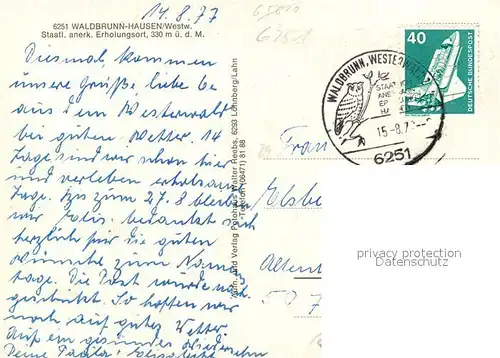 14.8.77
6251 WALDBRUNN-HAUSEN/Westw.
Staatl. anerk. Erholungsort, 330 m ü. d. M.
Diesmal kommen
unsere Grüße, liebe
aus dem Westerwald
bei guten Wetter. 14
Tage sind wir schon hier
und verleben erholsame
Tage. Bis zum 27.8 bleiben
wir. Elis. bedankt sich
herzlich für die guten
Wünsche zum Namens
tage. Die Post wurde nach
geschickt. So hoffen wir
noch auf gutes Wetter.
Auf ein gesundes Wiedersehn
Deine Paula + Elisabeth
Foto- und Verlag Fotohaus Walter Reebs, 6293 Löhnberg/Lahn
Telefon (06471) 81 88
6251
40
DEUTSCHE BUNDESPOST
WALDBRUNN, WESTERWALD
STAAT
ANE
EP
HA
15.-8.7
6251
Frau
Elsbe
Alten
privacy protection
Datenschutz